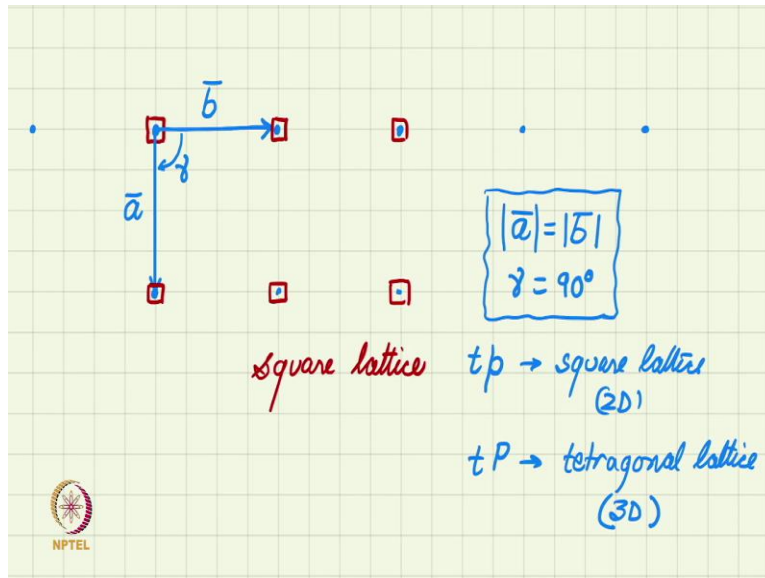 b̅
γ
a̅
|a̅| = |b̅|
γ = 90°
square lattice
tp → square lattice
(2D)
tP → tetragonal lattice
(3D)
NPTEL